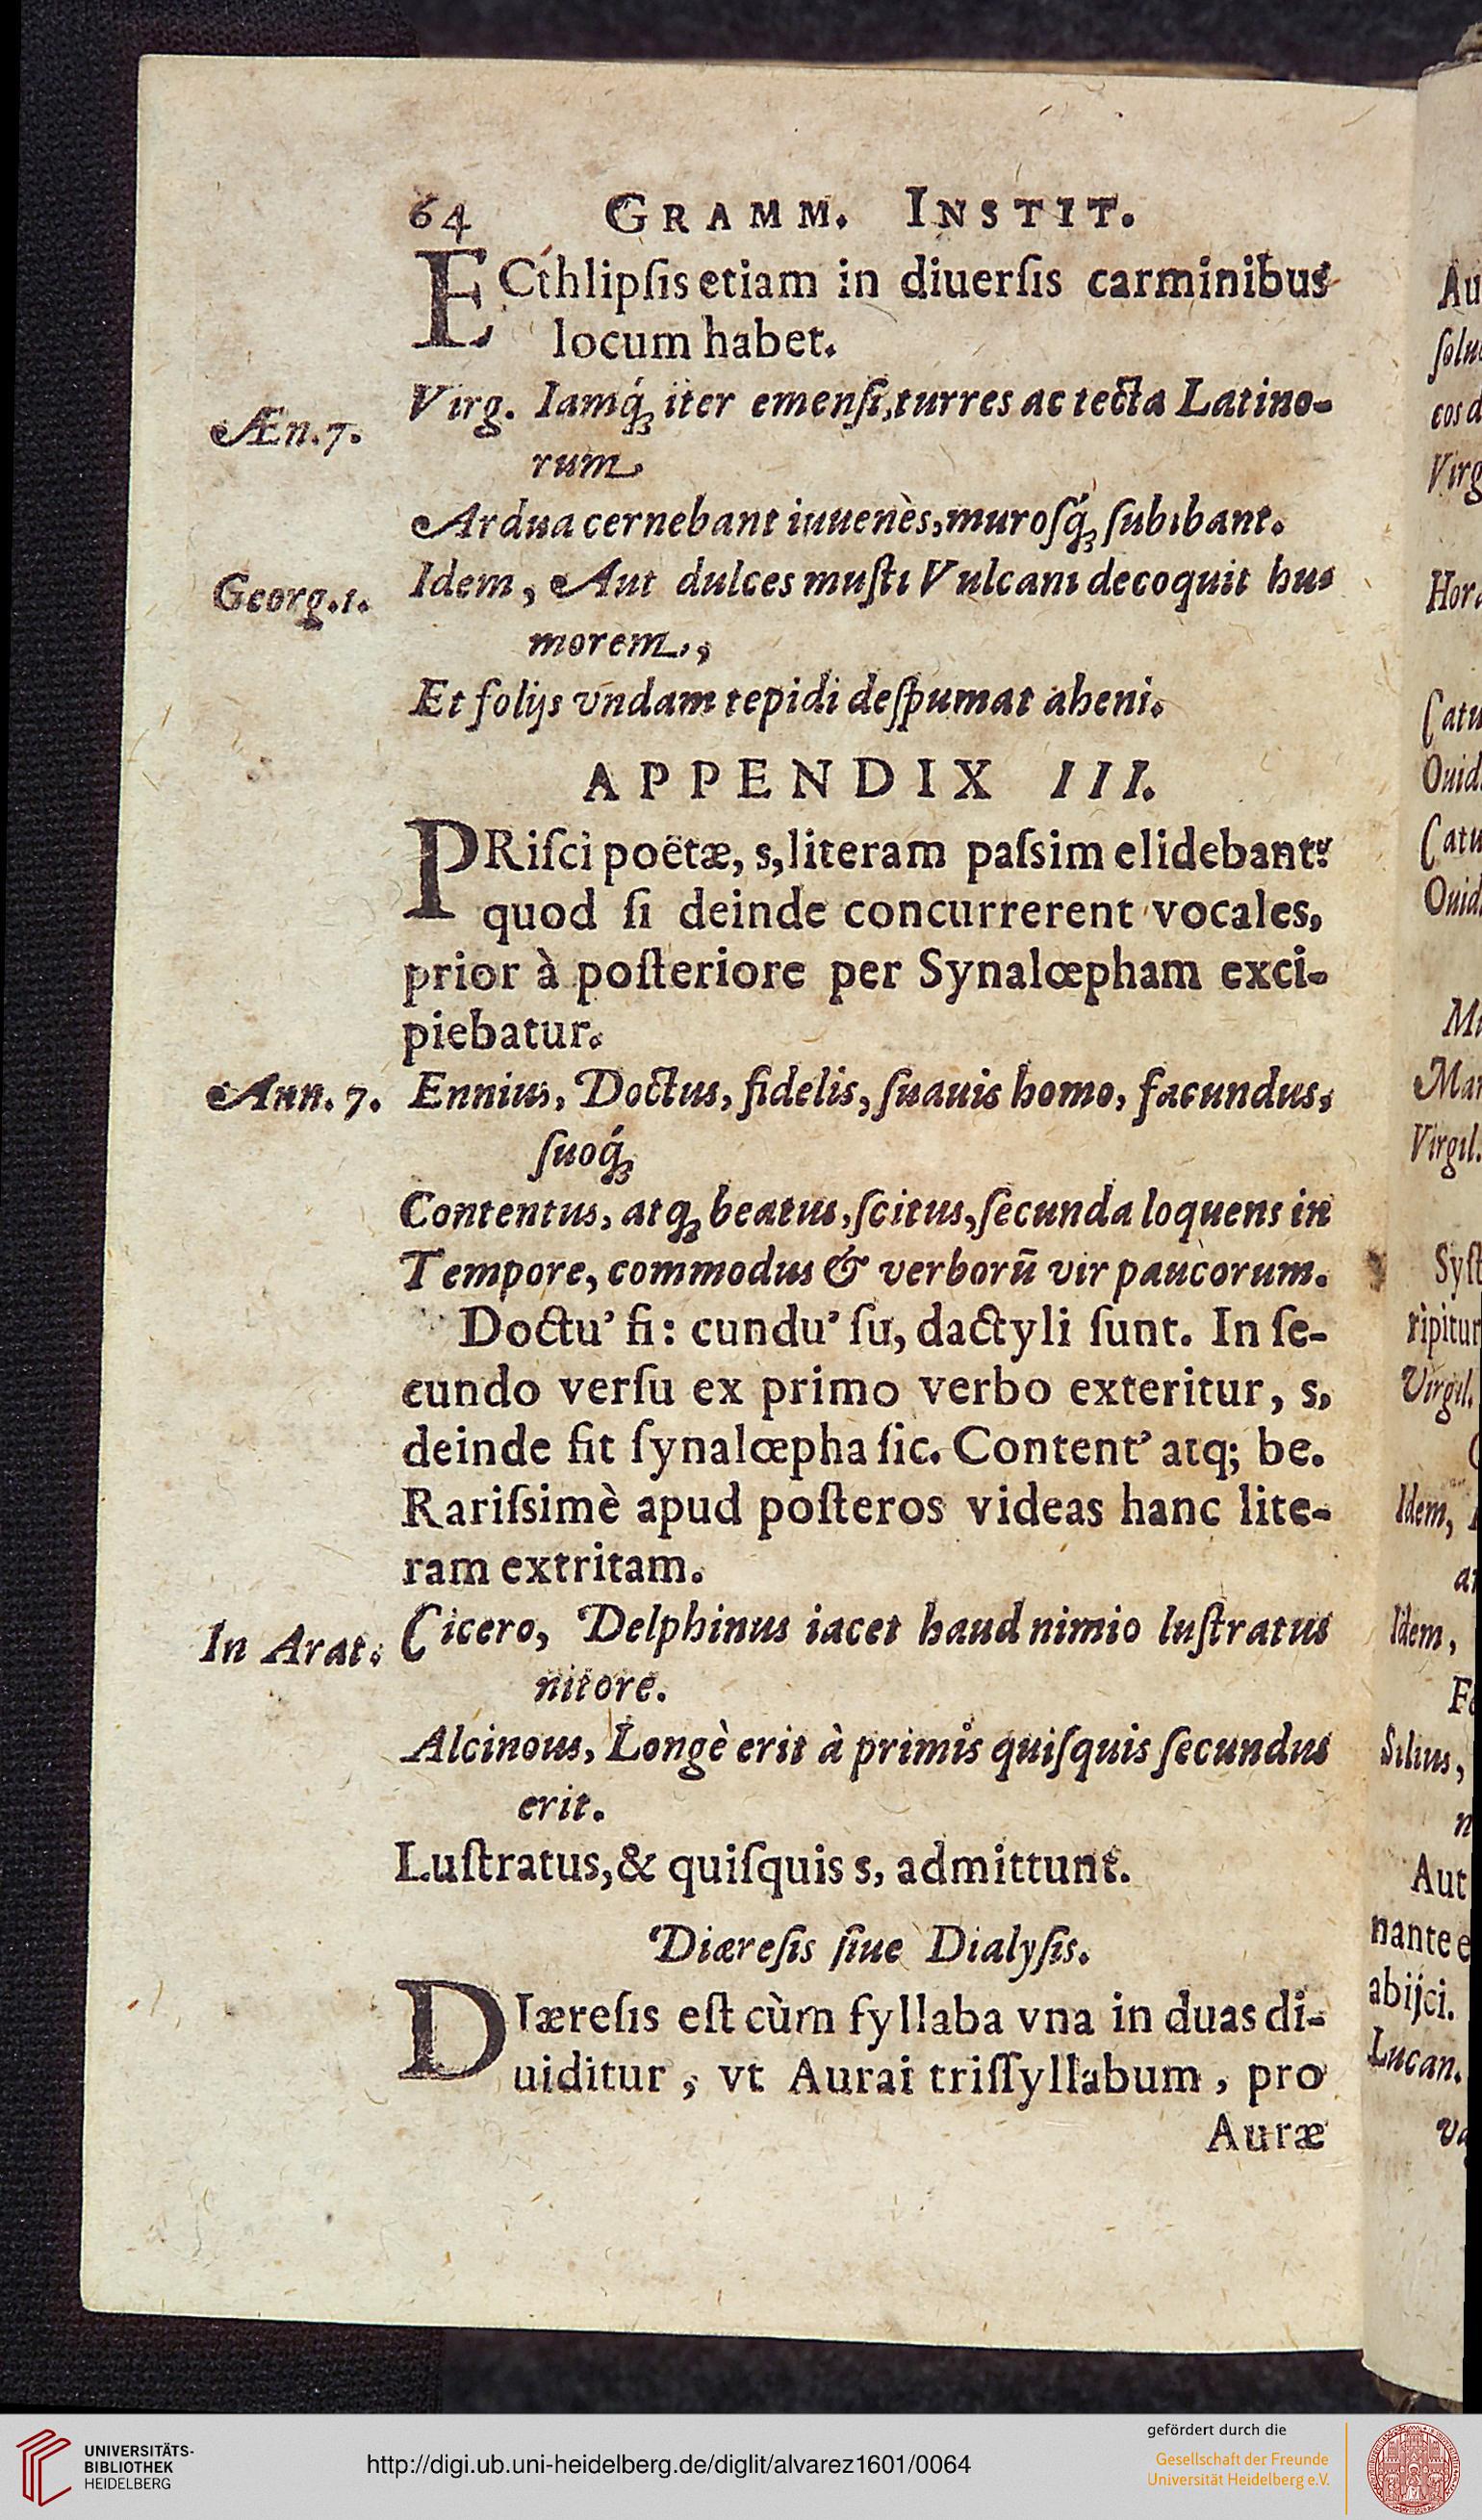 64 GRAMM. INSTIT.
ECthlipſis etiam in diuerſis carminibus
locum habet.
Æn. 7.
Virg. Iamq́ꝫ iter emenſi, turres ac tecta Latino-
rum
Ardua cernebant iuuenès, muroſq́ꝫ ſubibant.
Georg. 1.
Idem, Aut dulces muſti Vulcani decoquit hu-
morem,
Et folijs vndam tepidi deſpumat aheni.
APPENDIX III.
PRiſci poëtæ, s, literam paſsim elidebant:
quod ſi deinde concurrerent vocales,
prior à poſteriore per Synalœpham exci-
piebatur.
Ann. 7.
Ennius, Doctus, fidelis, ſuauis homo, facundus,
ſuoq́ꝫ
Contentus, atqꝫ beatus, ſcitus, ſecunda loquens in
Tempore, commodus & verborū vir paucorum.
Doctu’ fi: cundu’ ſu, dactyli ſunt. In ſe-
cundo verſu ex primo verbo exteritur, s,
deinde fit ſynalœpha ſic. Content’ atq; be.
Rariſsimè apud poſteros videas hanc lite-
ram extritam.
In Arat.
Cicero, Delphinus iacet haud nimio luſtratus
nitore.
Alcinous, Longè erit à primis quiſquis ſecundus
erit.
Luſtratus, & quiſquis s, admittunt.
Diæreſis ſiue Dialyſis.
DIæreſis eſt cùm ſyllaba vna in duas di-
uiditur, vt Aurai triſſyllabum, pro
Auræ
Au
ſolu
eos d
Virg
Hor
Catu
Ouid
Catu
Ouid
Mar
Virgil.
Syſt
ripitur
Virgil.
Idem,
Idem,
Silius,
Aut
nante e
abijci.
Lucan.
UNIVERSITÄTS-
BIBLIOTHEK
HEIDELBERG
http://digi.ub.uni-heidelberg.de/diglit/alvarez1601/0064
gefördert durch die
Gesellschaft der Freunde
Universität Heidelberg e.V.